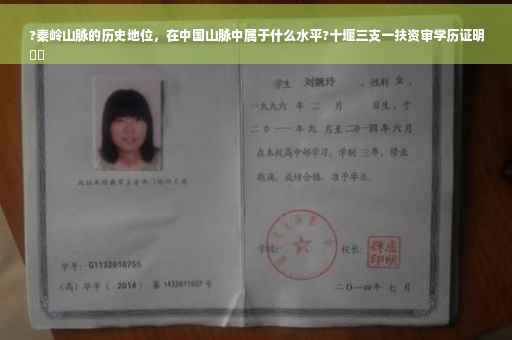 ?秦岭山脉的历史地位，在中国山脉中属于什么水平?十堰三支一扶资审学历证明
学生 刘婉玲 ，性别 女 ，
一九九六 年 二 月 日生，于
二〇一一年九 月至二〇一四年六月
在本校高中部学习，学制 三年，修业
期满，成绩合格，准予毕业。
学校： 校长：
学号：G1132010755
（高）毕字（ 2014 ）第 1432011007 号
二〇一四年 七 月